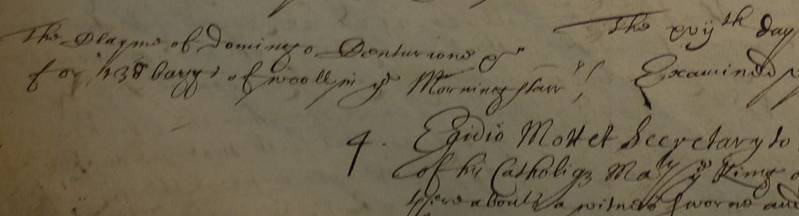 The Clayme of Domingo Venturione &c
for 138 baggs of wooll in ye Morning starr
The xvijth day
Examined
4. Egidio Mottet Secretary to
of his Catholiq Maty ye King
thereabouts a witnes sworne and